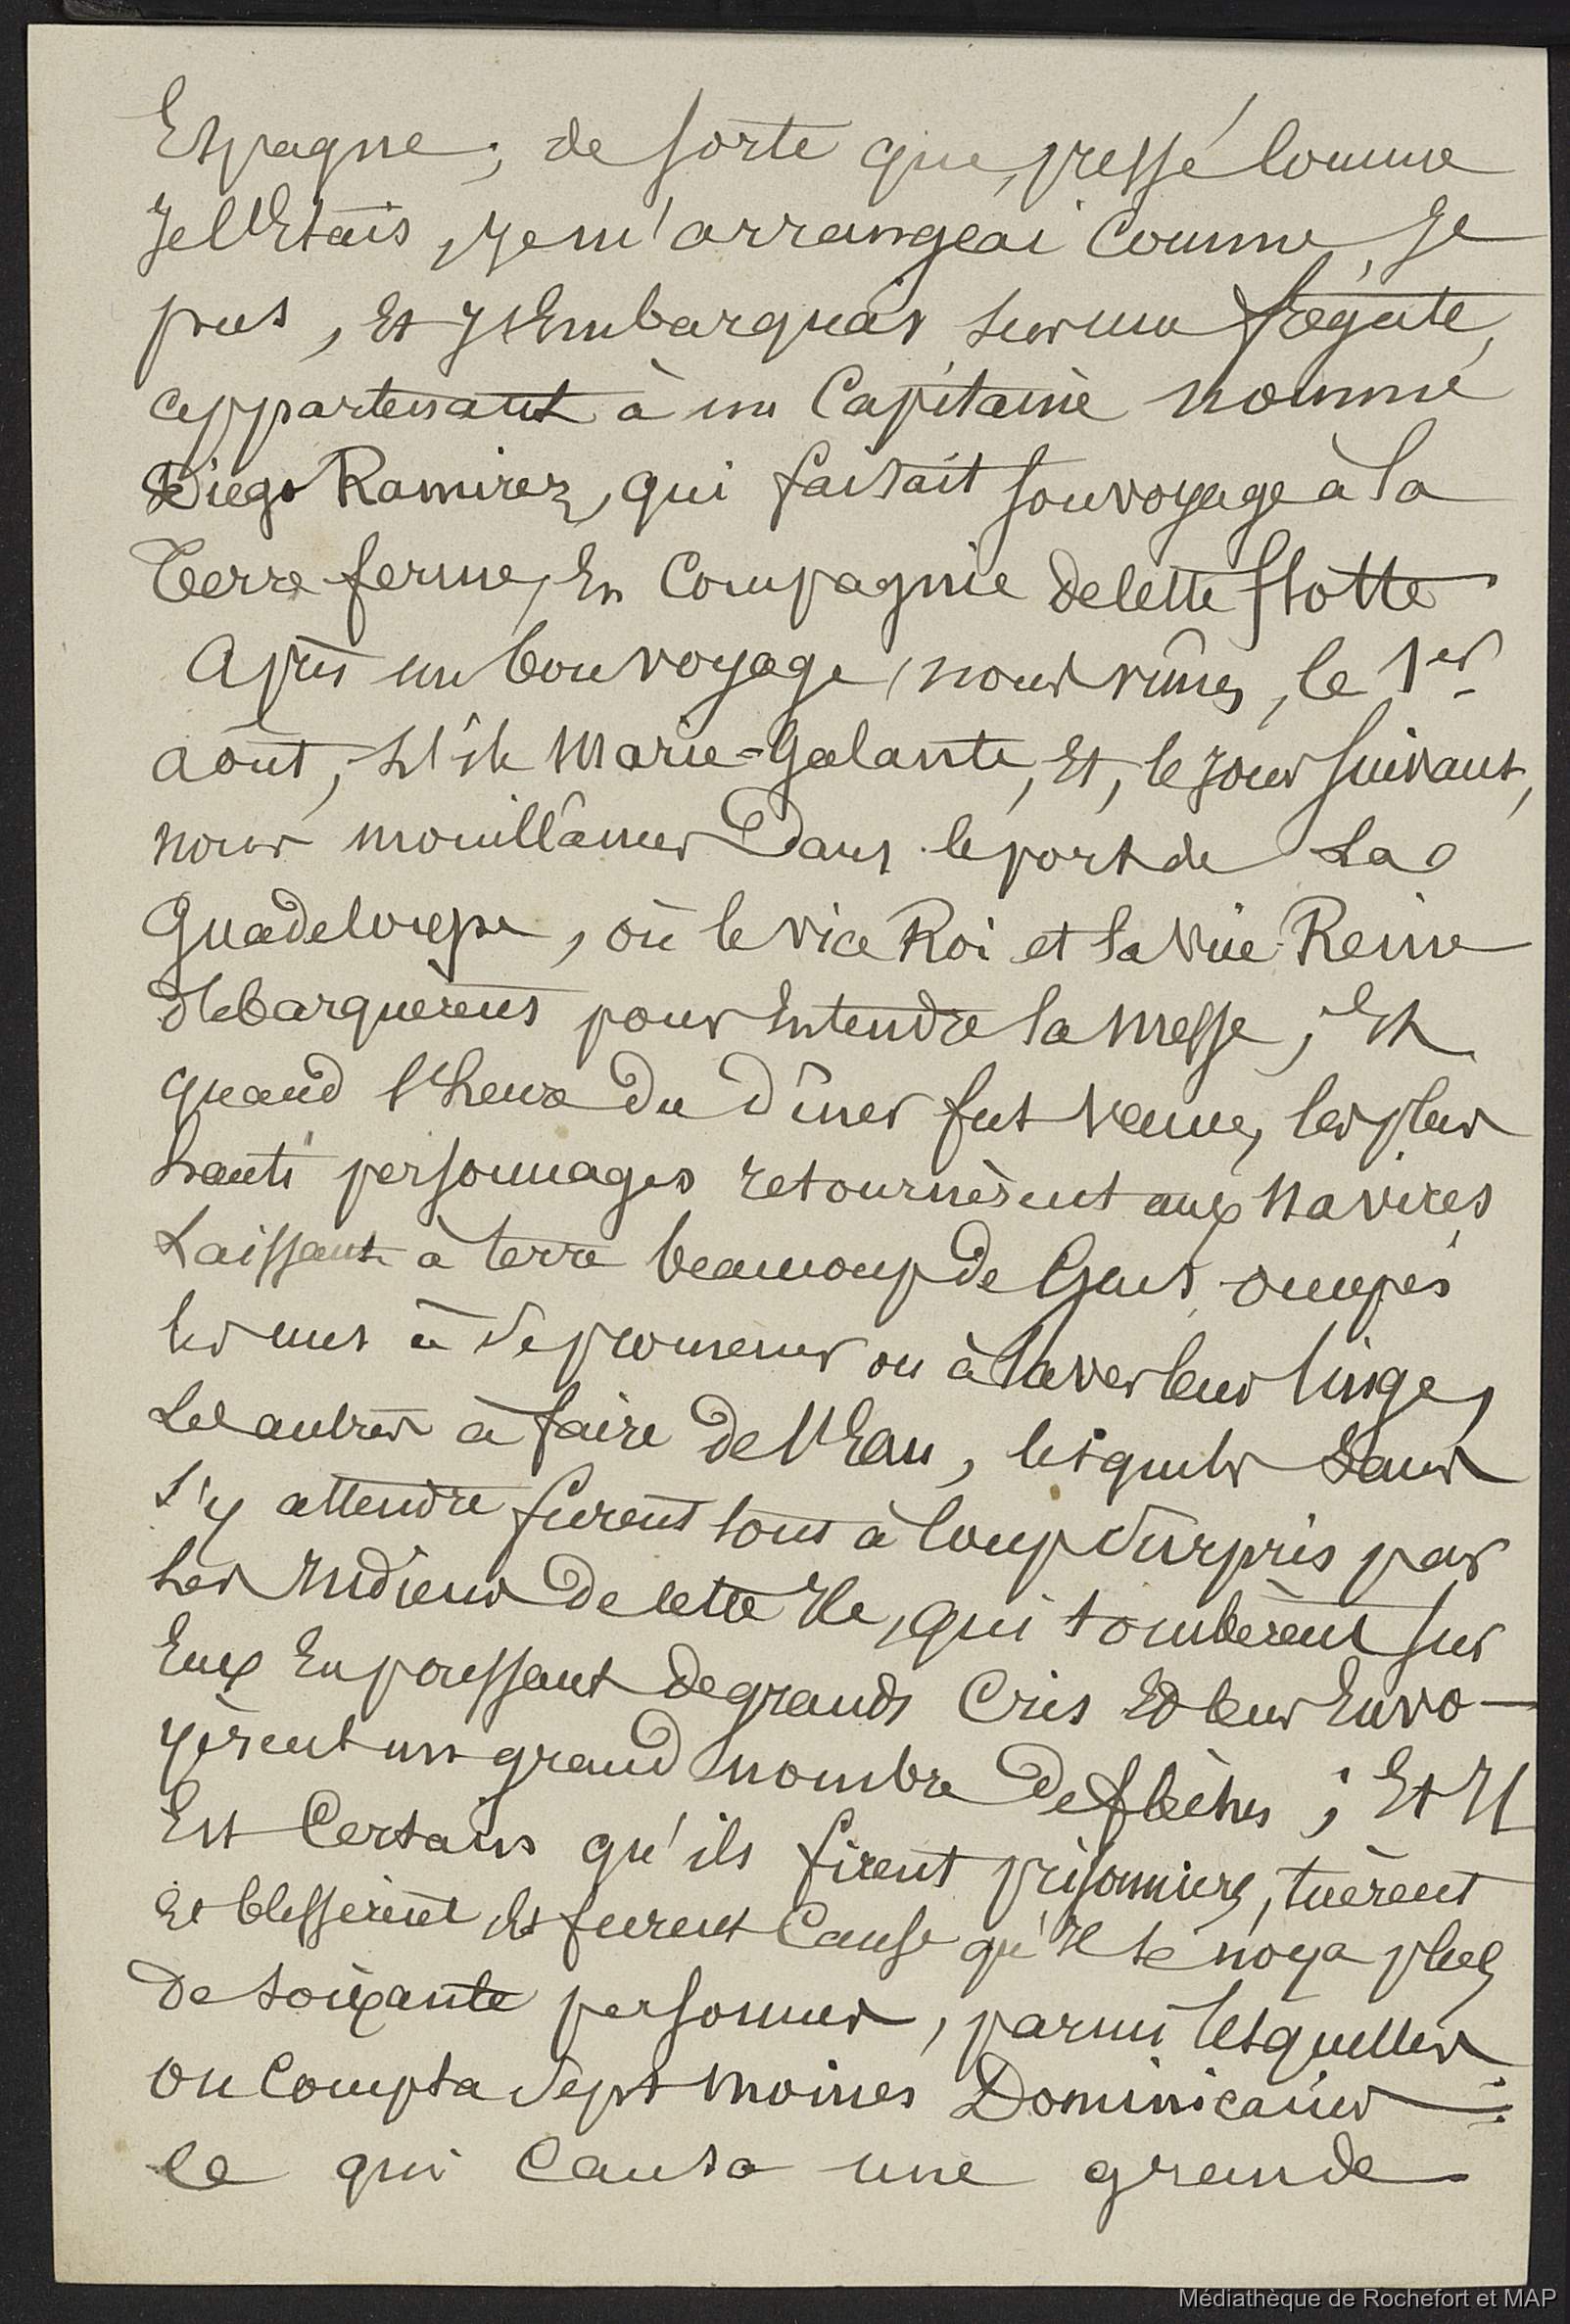 Espagne, de sorte que, pressé comme
Je l'Etais, je m'arrangeai comme je
pus, Et j'Embarquai sur une frégate,
appartenant à un Capitaine nommé
Diego Ramirez, qui faisait son voyage à la
Terre ferme, En Compagnie de cette flotte
Après un bon voyage, nous vîmes, le 1er
août, l'île Marie=Galante, Et, le jour suivant,
nous mouillâmes Dans le port de La
Guadeloupe, où le vice Roi et la Vice Reine
débarquèrent pour Entendre la messe ; Et
quand l'heure Du Dîner fut venue, les plus
hauts personnages retournèrent aux navires
Laissant à terre beaucoup de Gens, occupés
les uns à se promener ou à laver leur linge,
Les autres à faire De l'Eau, lesquels Sans
s'y attendre furent tout à coup surpris par
les Indiens De cette Ile, qui tombèrent sur
Eux En poussant De grands Cris Et leur Envo-
yèrent un grand nombre De flèches ; Et Il
Est Certain qu'ils firent prisonniers, tuèrent
Et blessèrent, Et furent Cause qu'Il se noya plus
De soixante personnes, parmi lesquelles
on Compta Sept moines Dominicains
ce qui Causa une grande
Médiathèque de Rochefort et MAP